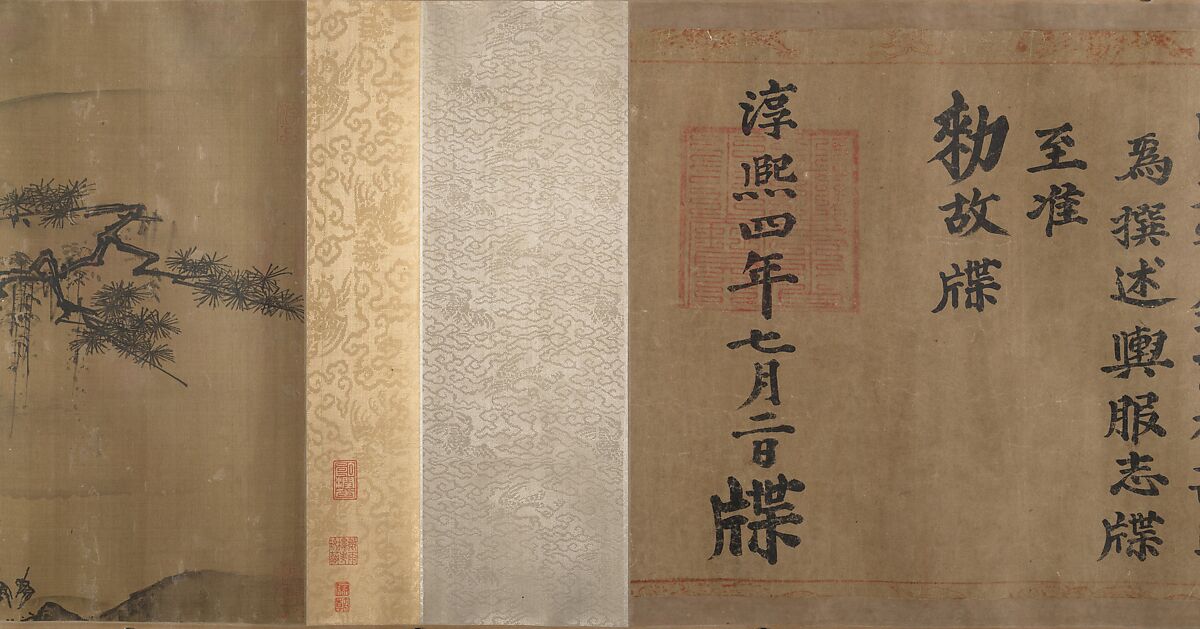 為撰述輿服志牒
至准
勑故牒
淳熙四年七月二日牒